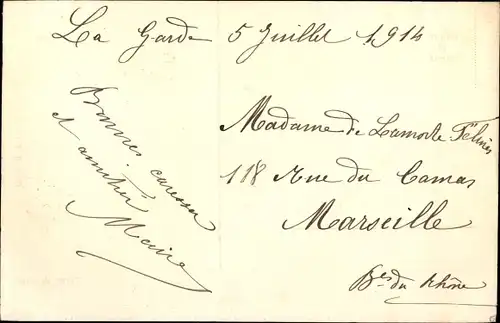 La Garde 5 Juillet 1914
Bonnes caresses
et amitiés
Marie
Madame de Lamotte Félines
118 Rue du Camas
Marseille
Bes du Rhône